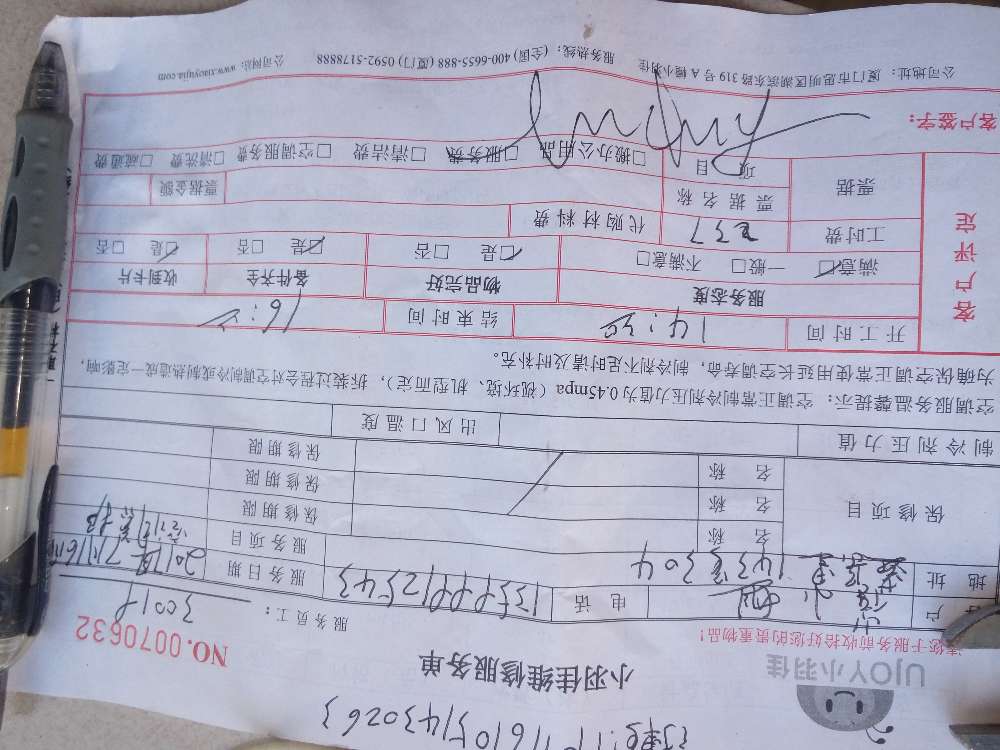 UJOY小羽佳
小羽佳维修服务单
NO.0070632
请您于服务前收拾好您的贵重物品！
服务员工：
户
电话
服务日期
地址
143
304
服务项目
保修项目
名称
保修期限
名称
保修期限
名称
保修期限
制冷剂压力值
出风口温度
空调服务温馨提示：空调正常制冷剂压力值为0.45mpa（视环境、机型而定），拆装过程会对空调制冷或制热造成一定影响，
为确保空调正常使用延长空调寿命，制冷剂不足时请及时补充。
客户评定
开工时间
14:30
结束时间
16:
服务态度
物品完好
备件齐全
收到卡片
满意☑ 一般□ 不满意□
☑是 □否
☑是 □否
☑是 □否
工时费
237
代购材料费
票据
票据名称
票据金额
项目
□搬办公用品 □服务费 □清洁费 □空调服务费 □清洗费 □疏通费
客户签字：
公司地址：厦门市思明区湖滨东路319号A幢小羽佳 服务热线：(全国) 400-6655-888 (厦门) 0592-5178888 公司网站：www.xiaoyujia.com